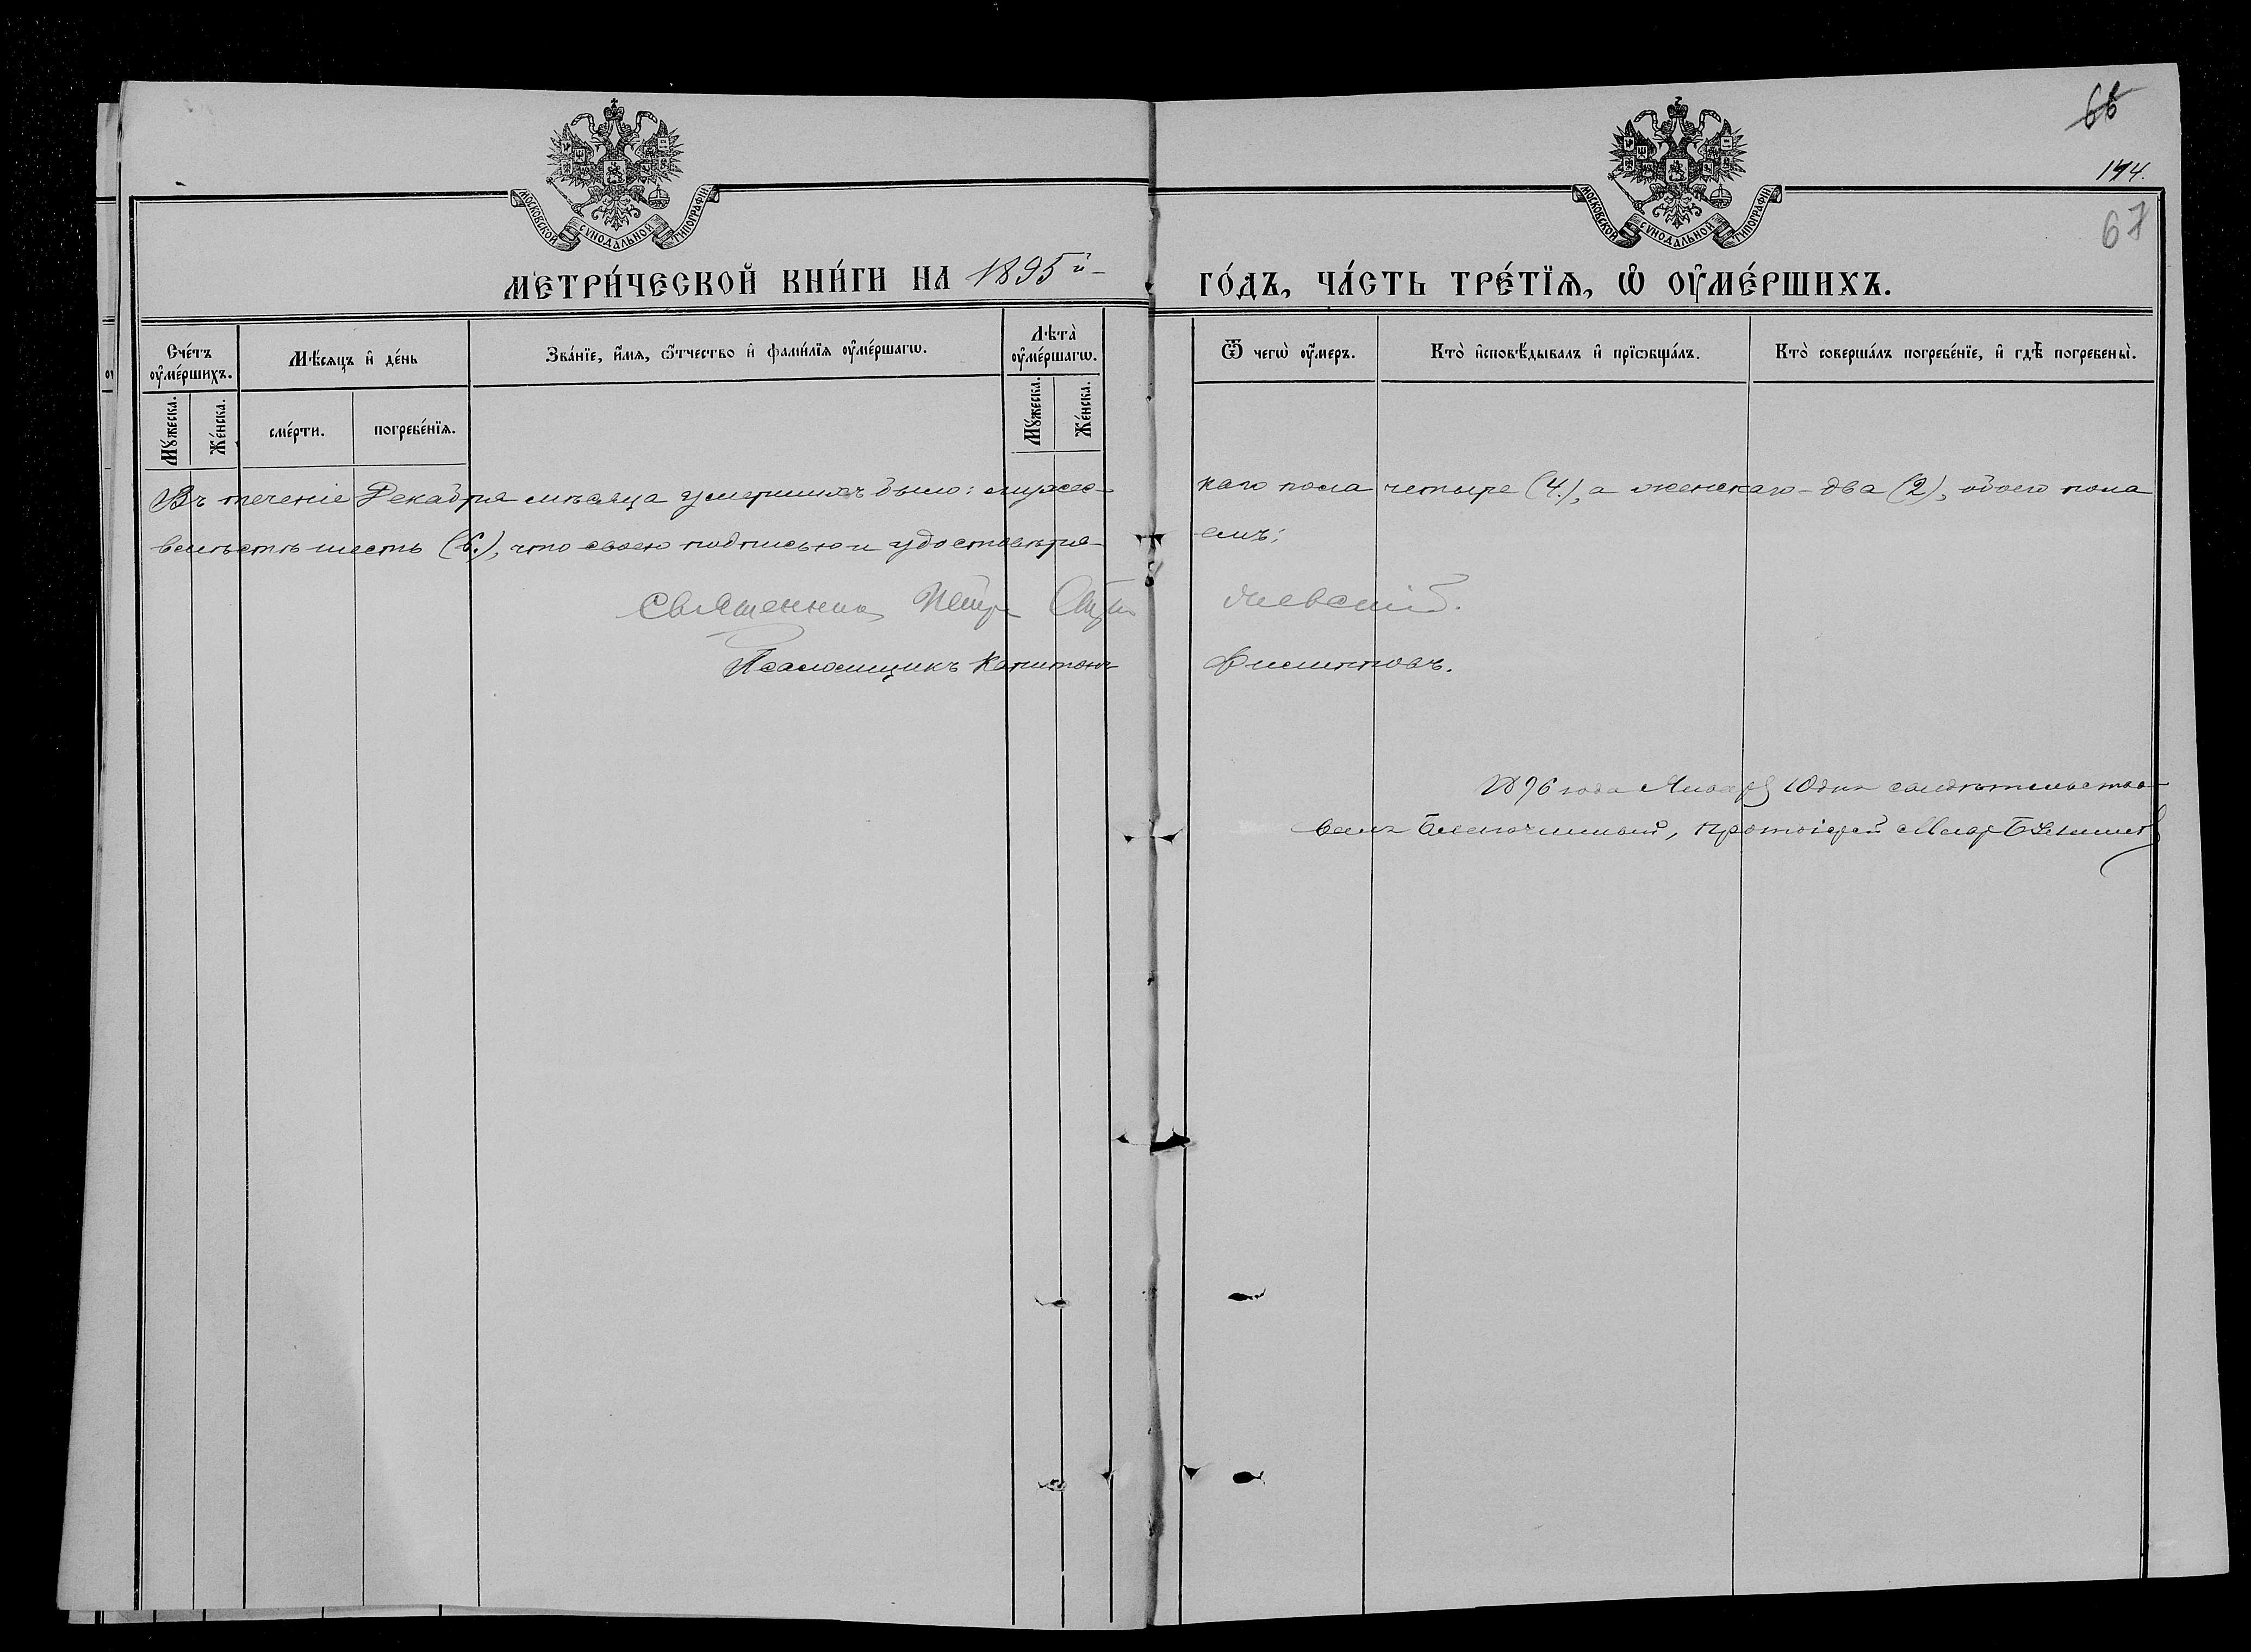 66
174.
67
МОСКОВСКОЙ СѴНОДАЛЬНОЙ ТИПОГРАФІИ
МОСКОВСКОЙ СѴНОДАЛЬНОЙ ТИПОГРАФІИ
МЕТРИ́ЧЕСКОЙ КНИ́ГИ НА 1895й ГО́ДЪ, ЧА́СТЬ ТРЕ́ТЇѦ, Ѡ҆ ОУ҆МЕ́РШИХЪ.
Сче́тъ оу҆ме́ршихъ.
Мѣ́сяцъ и҆ де́нь
Зва́нїе, и҆́мя, ѻ҆́тчество и҆ фами́лїя оу҆ме́ршагѡ.
Лѣта̀ оу҆ме́ршагѡ.
Ѿ чегѡ̀ оу҆́меръ.
Кто̀ и҆сповѣ́дывалъ и҆ прїѡбща́лъ.
Кто̀ соверша́лъ погребе́нїе, и҆ гдѣ̀ погребены̀.
Мꙋ́жеска.
Же́нска.
сме́рти.
погребе́нїя.
Мꙋ́жеска.
Же́нска.
Въ теченіе Декабря мѣсяца умершихъ было: мужес- каго пола четыре (4.), а женскаго - два (2), обоего пола
вмѣстѣ шесть (6.), что своею подписью и удостовѣря- емъ:
Священник Петр
Псаломщикъ Капитонъ Филиповъ.
1896 года Января 10 дня свидѣтельство-
валъ Благочинный, протоіерей